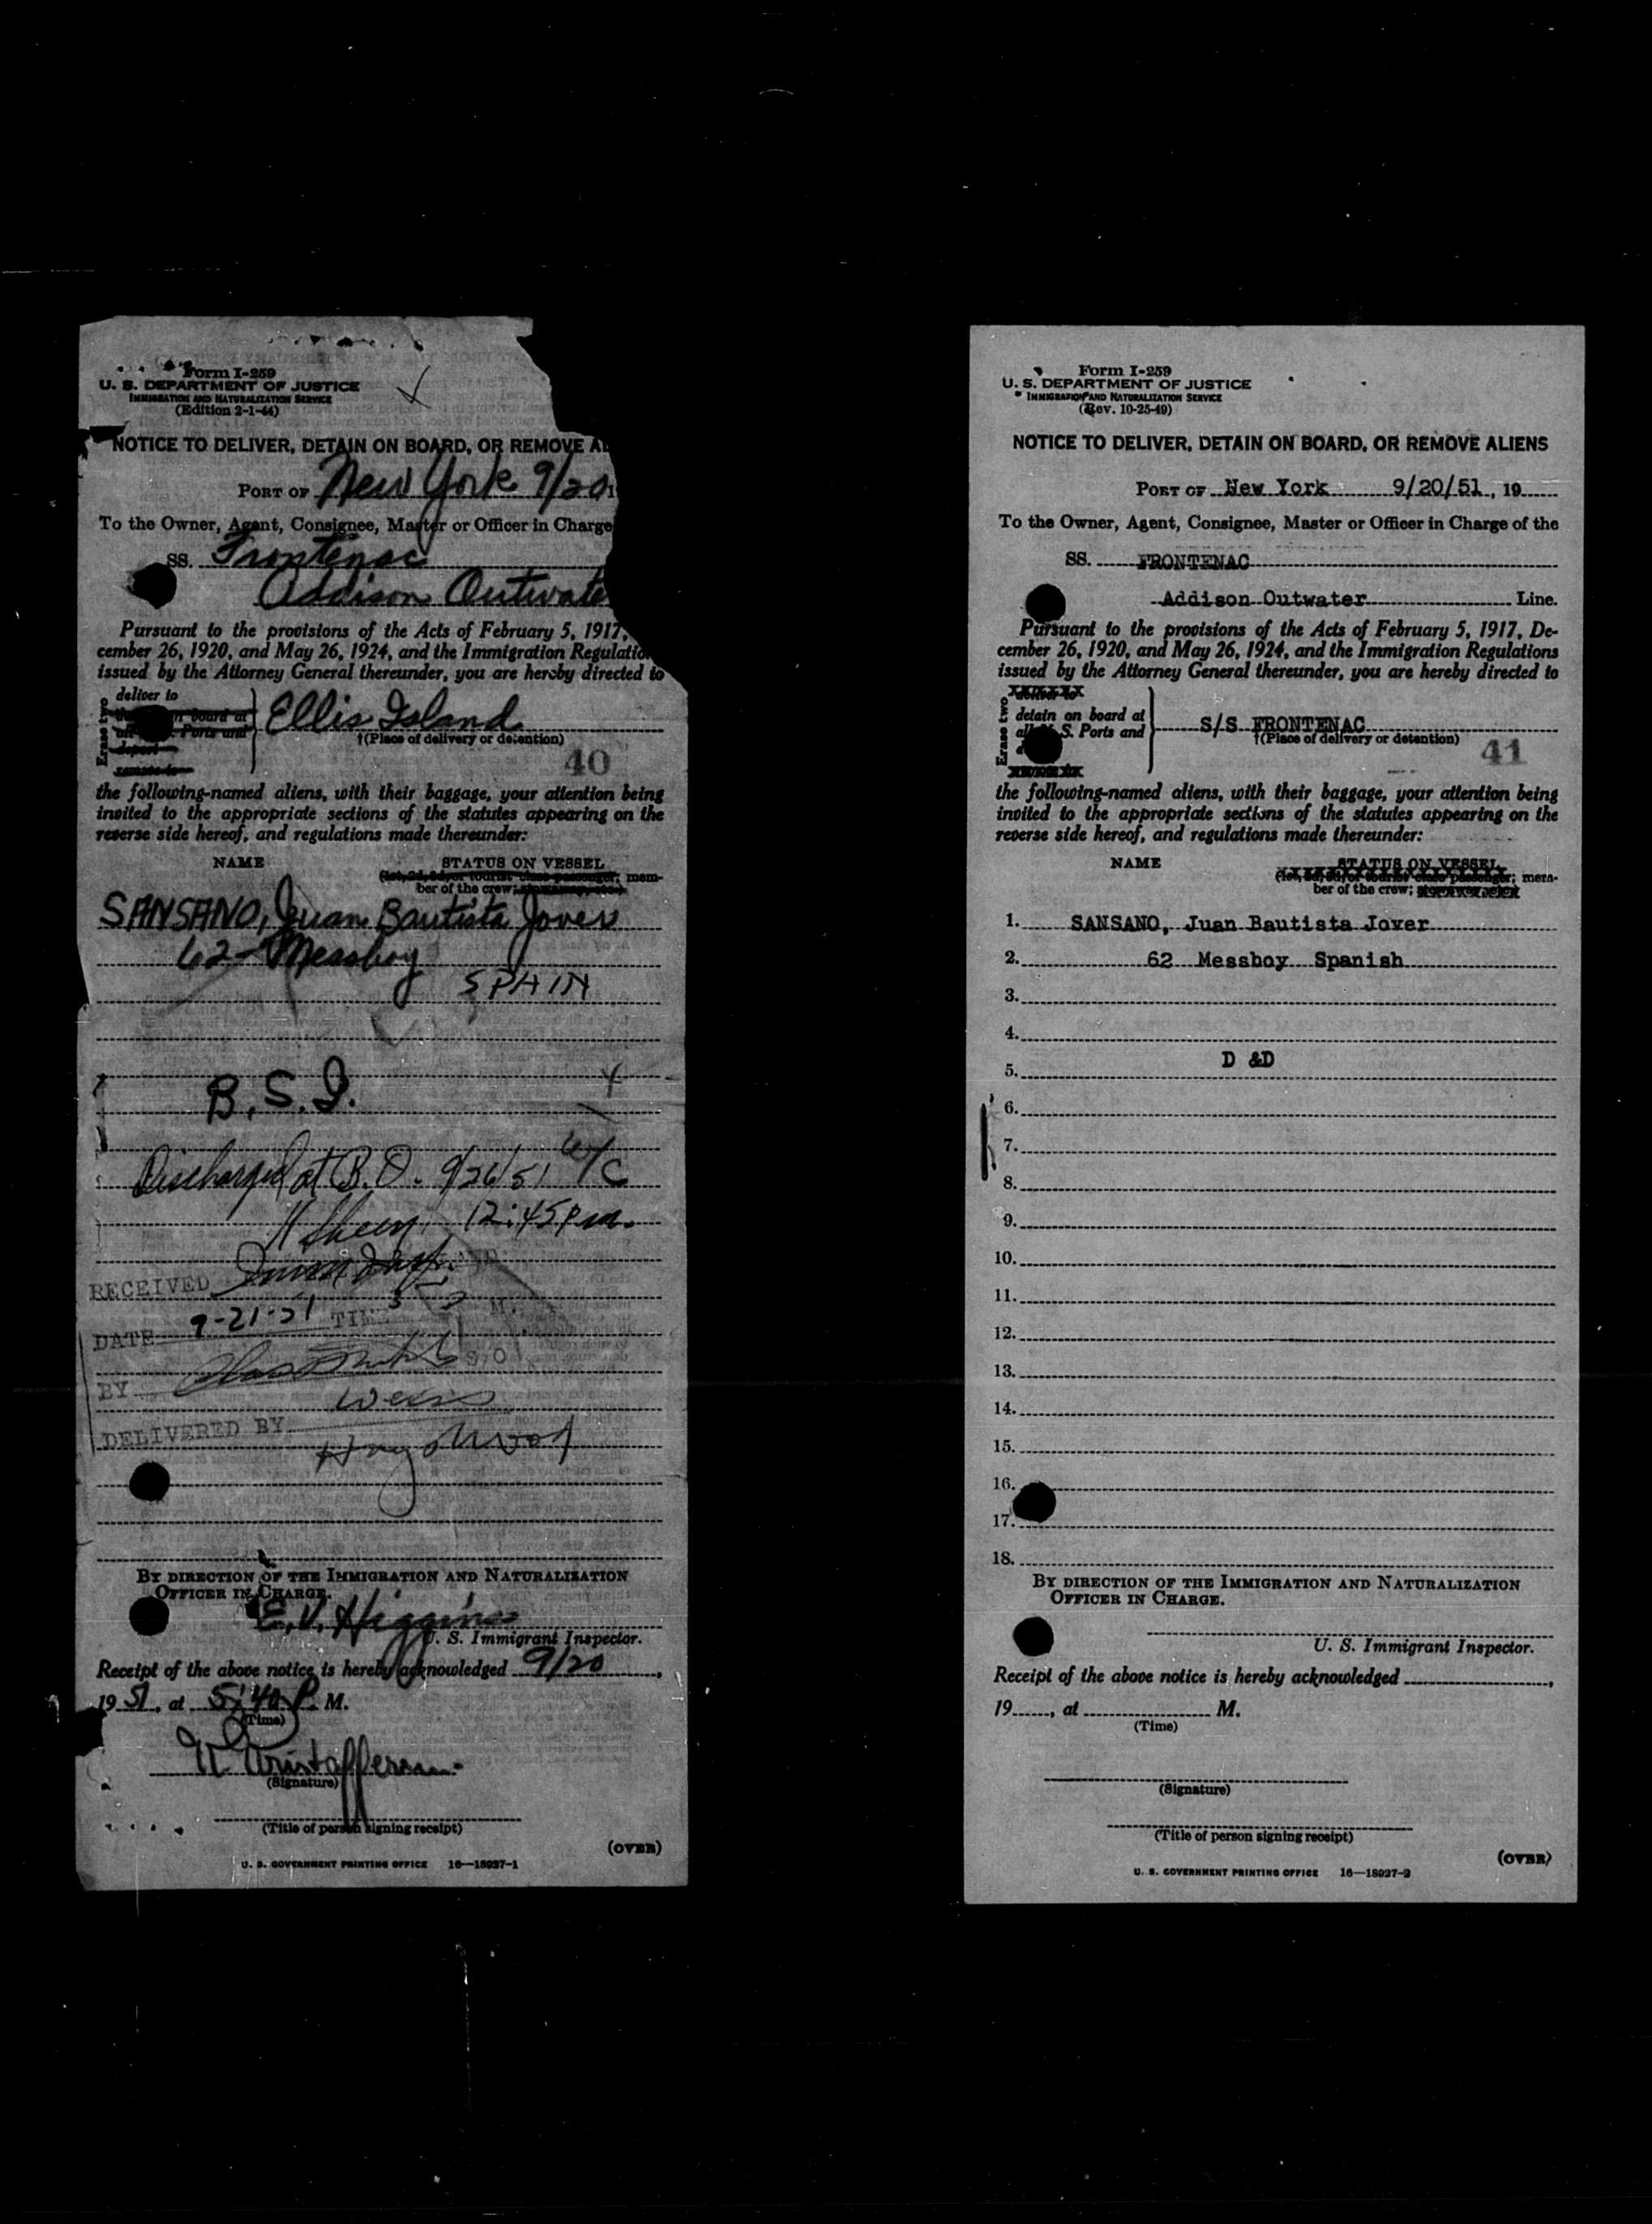 Form I-259
U. S. DEPARTMENT OF JUSTICE
IMMIGRATION AND NATURALIZATION SERVICE
(Edition 2-1-44)
NOTICE TO DELIVER, DETAIN ON BOARD, OR REMOVE AL
PORT OF New York 9/20
To the Owner, Agent, Consignee, Master or Officer in Charge
SS. Frontenac
Addison Outwate
Pursuant to the provisions of the Acts of February 5, 1917,
cember 26, 1920, and May 26, 1924, and the Immigration Regulatio
issued by the Attorney General thereunder, you are hereby directed to
Erase two
deliver to
n board at
Ports and
depart
Ellis Island
†(Place of delivery or detention)
40
the following-named aliens, with their baggage, your attention being
invited to the appropriate sections of the statutes appearing on the
reverse side hereof, and regulations made thereunder:
NAME STATUS ON VESSEL
(1st, 2d, 3d, or tourist class passenger; mem-
ber of the crew; stowaway, etc.)
SANSANO, Juan Bautista Jover
62 - Messboy
SPAIN
B.S.I.
Discharged at B.O. 9/26/51
12:45 pm.
RECEIVED
DATE 9-21-51 TIME M.
BY
Weiss
DELIVERED BY
BY DIRECTION OF THE IMMIGRATION AND NATURALIZATION
OFFICER IN CHARGE.
E.V. Higgins
U. S. Immigrant Inspector.
Receipt of the above notice is hereby acknowledged 9/20,
19 51, at 5:40 P. M.
(Time)
(Signature)
(Title of person signing receipt)
(OVER)
U. S. GOVERNMENT PRINTING OFFICE 16—18027-1
Form I-259
U. S. DEPARTMENT OF JUSTICE
IMMIGRATION AND NATURALIZATION SERVICE
(Rev. 10-25-49)
NOTICE TO DELIVER, DETAIN ON BOARD, OR REMOVE ALIENS
PORT OF New York 9/20/51, 19
To the Owner, Agent, Consignee, Master or Officer in Charge of the
SS. FRONTENAC
Addison Outwater Line.
Pursuant to the provisions of the Acts of February 5, 1917, De-
cember 26, 1920, and May 26, 1924, and the Immigration Regulations
issued by the Attorney General thereunder, you are hereby directed to
Erase two
detain on board at
all S. Ports and
S/S FRONTENAC
†(Place of delivery or detention)
41
the following-named aliens, with their baggage, your attention being
invited to the appropriate sections of the statutes appearing on the
reverse side hereof, and regulations made thereunder:
NAME STATUS ON VESSEL
(1st, 2d, 3d, or tourist class passenger; mem-
ber of the crew;
1. SANSANO, Juan Bautista Jover
2. 62 Messboy Spanish
3.
4.
D &D
5.
6.
7.
8.
9.
10.
11.
12.
13.
14.
15.
16.
17.
18.
BY DIRECTION OF THE IMMIGRATION AND NATURALIZATION
OFFICER IN CHARGE.
U. S. Immigrant Inspector.
Receipt of the above notice is hereby acknowledged ,
19 , at M.
(Time)
(Signature)
(Title of person signing receipt)
(OVER)
U. S. GOVERNMENT PRINTING OFFICE 16—18027-2